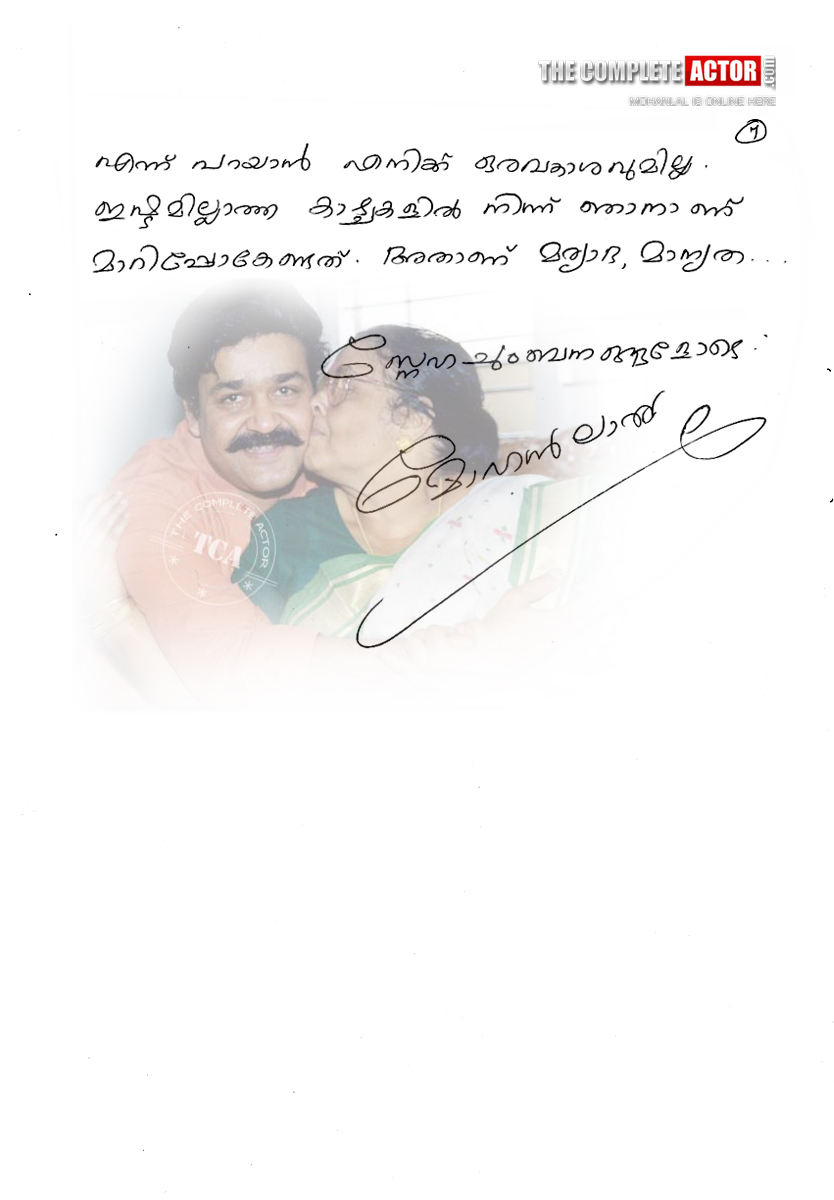 THE COMPLETE ACTOR .com
MOHANLAL IS ONLINE HERE
7
എന്ന് പറയാൻ എനിക്ക് ഒരവകാശവുമില്ല.
ഇഷ്ടമില്ലാത്ത കാഴ്ചകളിൽ നിന്ന് ഞാനാണ്
മാറിപ്പോകേണ്ടത്. അതാണ് മര്യാദ, മാന്യത...
സ്നേഹചുംബനങ്ങളോടെ.
മോഹൻലാൽ
THE COMPLETE ACTOR
TCA